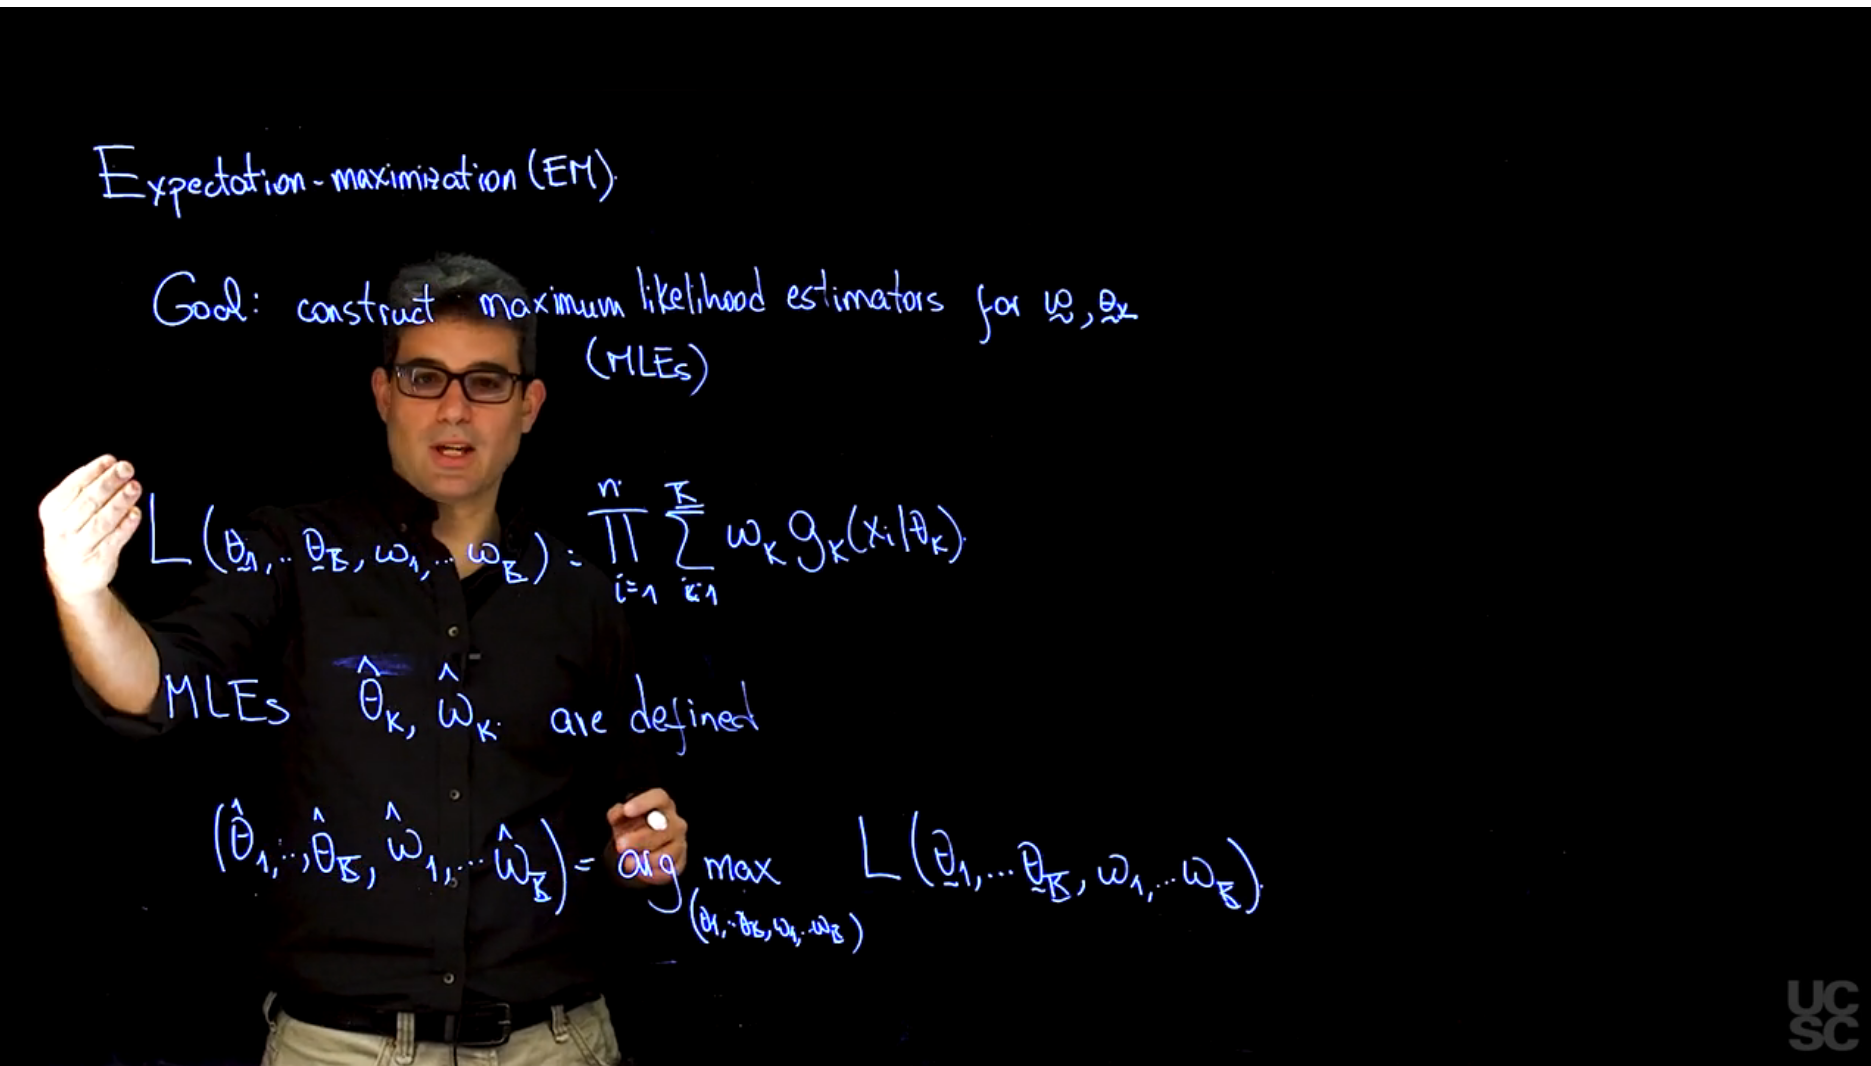 Expectation-maximization (EM).
Goal: construct maximum likelihood estimators for ω̰, θ̰ₖ
(MLEs)
L(θ̰₁,..θ̰_K̅, ω₁,...ω_K̅) = ∏_{i=1}^{n} ∑_{k=1}^{K̅} ω_k g_k(x_i|θ_k).
MLEs θ̂_k, ω̂_k. are defined
(θ̂₁,..,θ̂_K̅, ω̂₁,...ω̂_K̅) = arg max_{(θ₁,..θ_K̅, ω₁,..ω_K̅)} L(θ̰₁,...θ̰_K̅, ω₁,...ω_K̅).
UC
SC